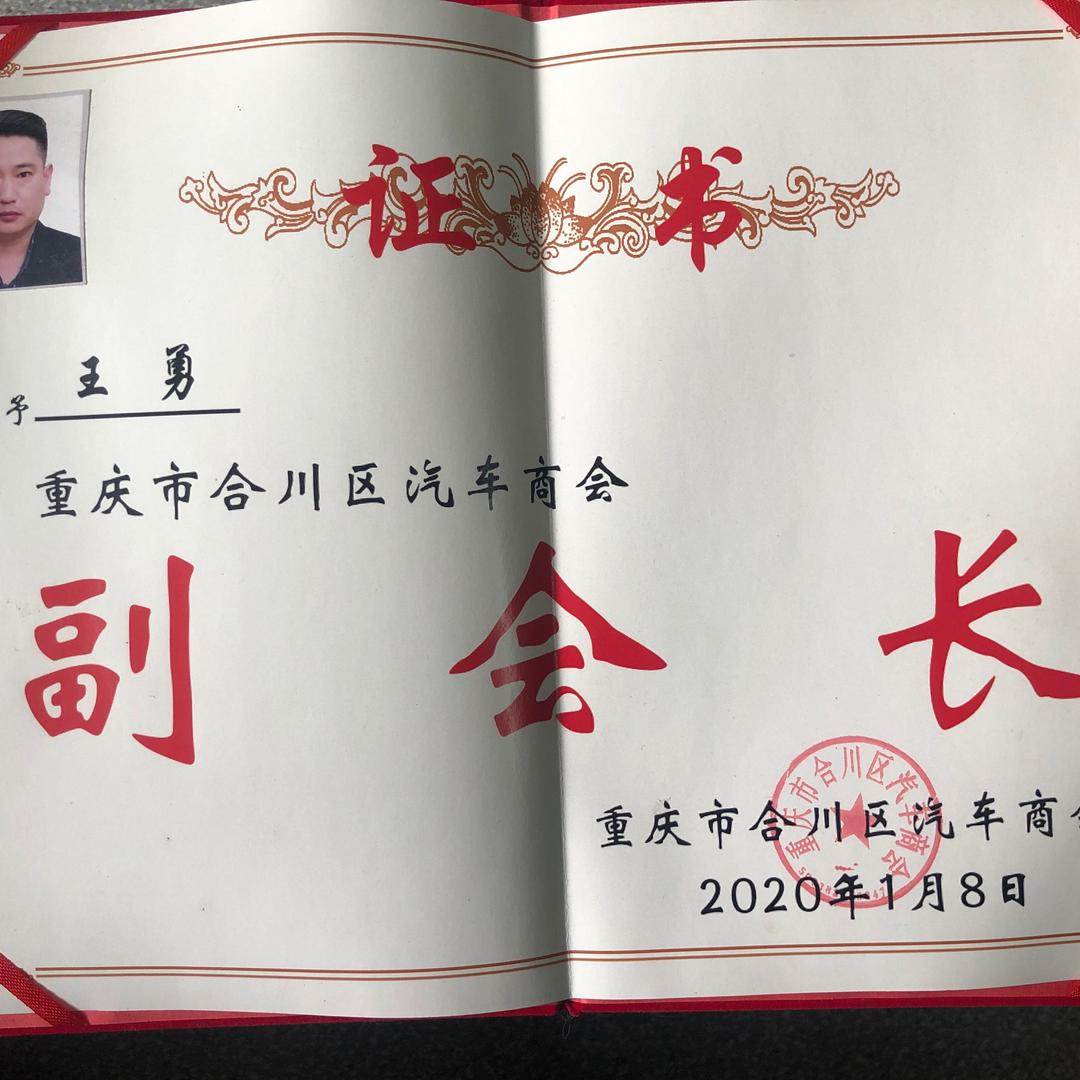 证书
予 王勇
重庆市合川区汽车商会
副会长
重庆市合川区汽车商会
重庆市合川区汽车商
2020年1月8日